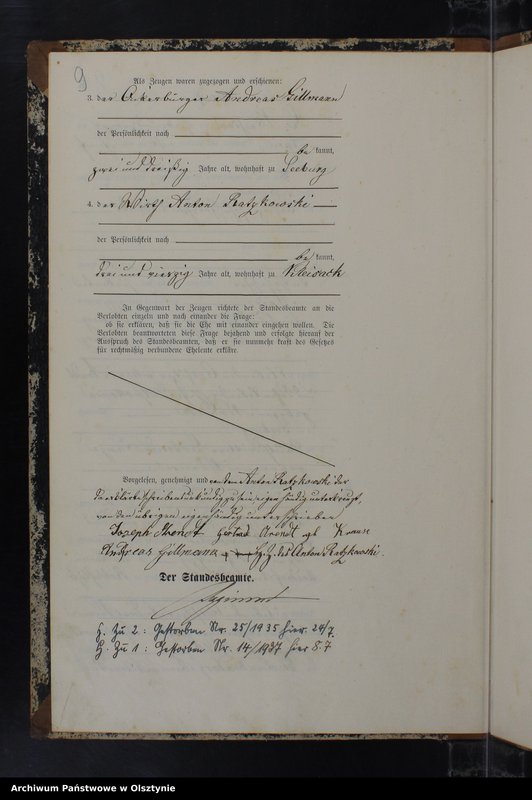 9
Als Zeugen waren zugezogen und erschienen:
3. der Ackerbürger Andreas Gillmann
der Persönlichkeit nach
be kannt,
zwei und dreißig Jahre alt, wohnhaft zu Seeburg
4. der Wirth Anton Ratzkowski
der Persönlichkeit nach
be kannt,
drei und vierzig Jahre alt, wohnhaft zu Kleisack
In Gegenwart der Zeugen richtete der Standesbeamte an die
Verlobten einzeln und nach einander die Frage:
ob sie erklären, daß sie die Ehe mit einander eingehen wollen. Die
Verlobten beantworteten diese Frage bejahend und erfolgte hierauf der
Ausspruch des Standesbeamten, daß er sie nunmehr kraft des Gesetzes
für rechtmäßig verbundene Eheleute erkläre.
Vorgelesen, genehmigt und von dem Anton Ratzkowski der
da erklärte schreibensunkundig zu sein, eigenhändig unterkreuzt,
von den übrigen eigenhändig unterschrieben
Joseph Arendt Arendt gb Krause
Andreas Gillmann +++ H. Z. des Anton Ratzkowski.
Der Standesbeamte.
H. Zu 2: Gestorben Nr. 25/1935 hier.
H. Zu 1: Gestorben Nr. 14/1937 hier
Archiwum Państwowe w Olsztynie